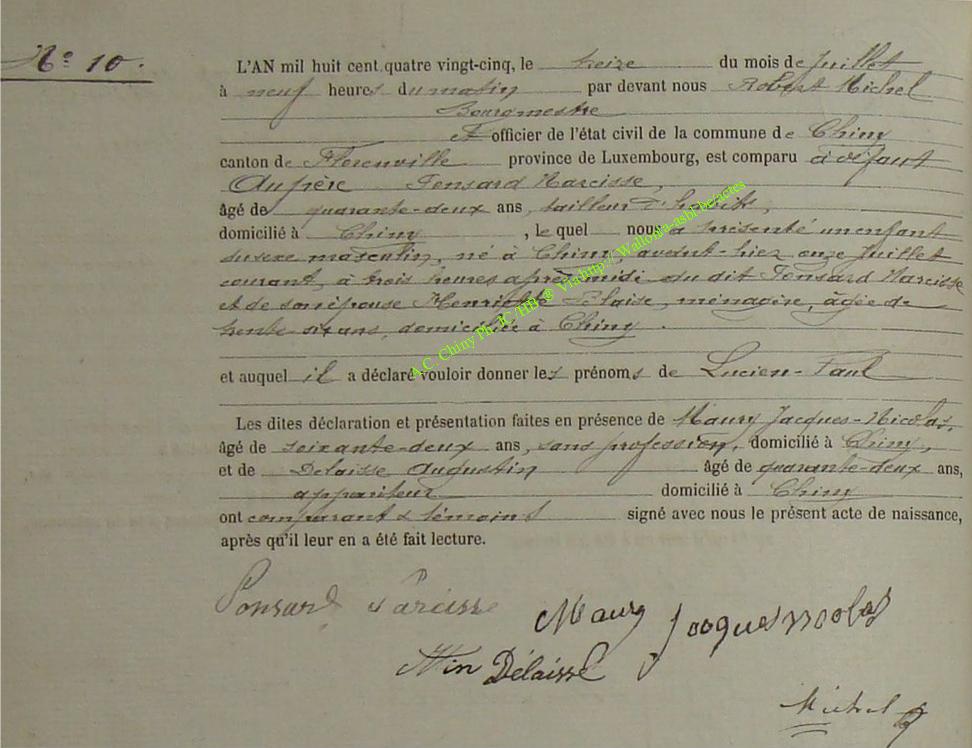 N° 10.
L'AN mil huit cent quatre vingt-cinq, le treize du mois de Juillet
à neuf heures du matin par devant nous Robert Michel
Bourgmestre
officier de l'état civil de la commune de Chiny
canton de Florenville province de Luxembourg, est comparu
Ponsard Narcisse,
âgé de quarante-deux ans, tailleur d'habits,
domicilié à Chiny, le quel nous a présenté un enfant
du sexe masculin, né à Chiny, avant-hier onze Juillet
courant, à trois heures après-midi du dit Ponsard Narcisse
et de son épouse Henriette Blaise, ménagère, âgée de
trente-six ans, domiciliée à Chiny.
et auquel il a déclaré vouloir donner les prénoms de Lucien-Paul
Les dites déclaration et présentation faites en présence de Maury Jacques-Nicolas,
âgé de soixante-deux ans, sans profession, domicilié à Chiny,
et de Delaisse Augustin âgé de quarante-deux ans,
appariteur domicilié à Chiny
ont comparant & témoins signé avec nous le présent acte de naissance,
après qu'il leur en a été fait lecture.
Ponsard Narcisse Maury Jacques
Délaisse
Michel
A.C. Chiny Ph. JC/HB @ Via http:// Wallonia-asbl-be/actes